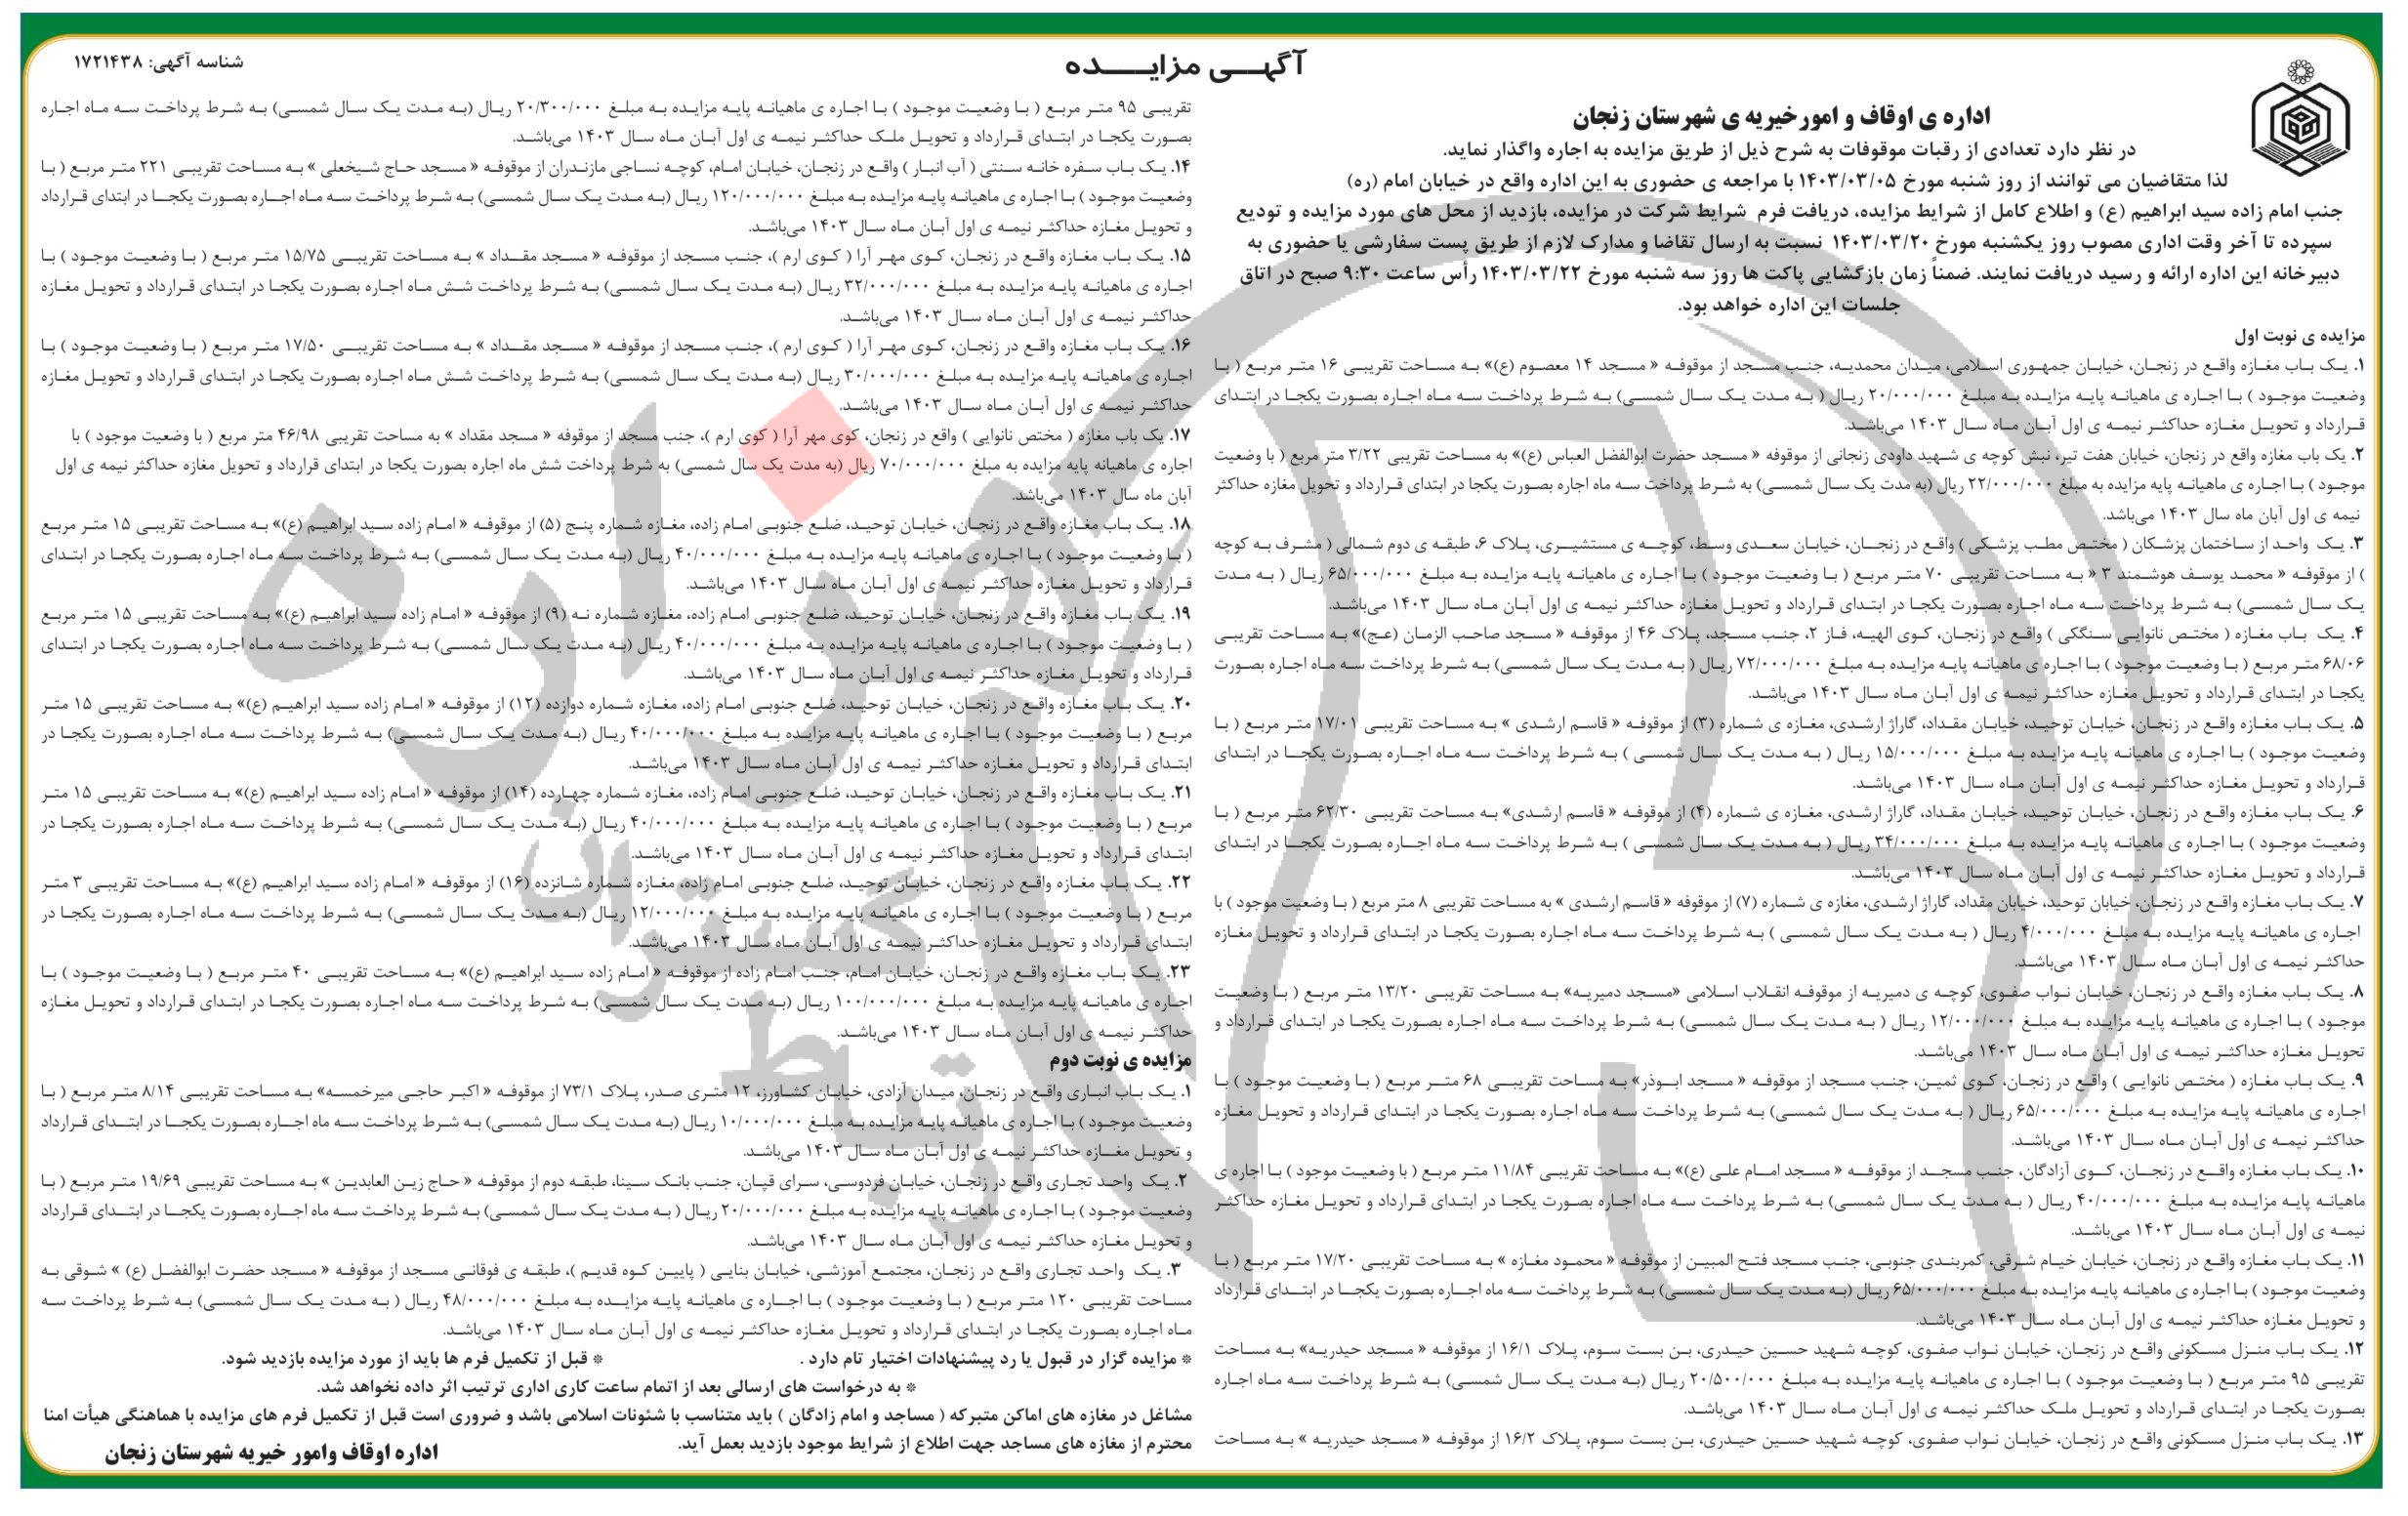 آگهی مزایده
شناسه آگهی: ۱۷۲۱۴۳۸
اداره ی اوقاف و امور خیریه ی شهرستان زنجان
در نظر دارد تعدادی از رقبات موقوفات به شرح ذیل از طریق مزایده به اجاره واگذار نماید.
لذا متقاضیان می توانند از روز شنبه مورخ ۱۴۰۳/۰۳/۰۵ با مراجعه ی حضوری به این اداره واقع در خیابان امام (ره)
جنب امام زاده سید ابراهیم (ع) و اطلاع کامل از شرایط مزایده، دریافت فرم شرایط شرکت در مزایده، بازدید از محل های مورد مزایده و تودیع
سپرده تا آخر وقت اداری مصوب روز یکشنبه مورخ ۱۴۰۳/۰۳/۲۰ نسبت به ارسال تقاضا و مدارک لازم از طریق پست سفارشی یا حضوری به
دبیرخانه این اداره ارائه و رسید دریافت نمایند. ضمناً زمان بازگشایی پاکت ها روز سه شنبه مورخ ۱۴۰۳/۰۳/۲۲ رأس ساعت ۹:۳۰ صبح در اتاق
جلسات این اداره خواهد بود.
مزایده ی نوبت اول
۱. یک باب مغازه واقع در زنجان، خیابان جمهوری اسلامی، میدان محمدیه، جنب مسجد از موقوفه « مسجد ۱۴ معصوم (ع)» به مساحت تقریبی ۱۶ متر مربع ( با
وضعیت موجود ) با اجاره ی ماهیانه پایه مزایده به مبلغ ۲۰/۰۰۰/۰۰۰ ریال ( به مدت یک سال شمسی) به شرط پرداخت سه ماه اجاره بصورت یکجا در ابتدای
قرارداد و تحویل مغازه حداکثر نیمه ی اول آبان ماه سال ۱۴۰۳ می‌باشد.
۲. یک باب مغازه واقع در زنجان، خیابان هفت تیر، نبش کوچه ی شهید داودی زنجانی از موقوفه « مسجد حضرت ابوالفضل العباس (ع)» به مساحت تقریبی ۳/۲۲ متر مربع ( با وضعیت
موجود ) با اجاره ی ماهیانه پایه مزایده به مبلغ ۲۲/۰۰۰/۰۰۰ ریال (به مدت یک سال شمسی) به شرط پرداخت سه ماه اجاره بصورت یکجا در ابتدای قرارداد و تحویل مغازه حداکثر
نیمه ی اول آبان ماه سال ۱۴۰۳ می‌باشد.
۳. یک واحد از ساختمان پزشکان ( مختص مطب پزشکی ) واقع در زنجان، خیابان سعدی وسط، کوچه ی مستشیری، پلاک ۶، طبقه ی دوم شمالی ( مشرف به کوچه
) از موقوفه « محمد یوسف هوشمند ۳ « به مساحت تقریبی ۷۰ متر مربع ( با وضعیت موجود ) با اجاره ی ماهیانه پایه مزایده به مبلغ ۶۵/۰۰۰/۰۰۰ ریال ( به مدت
یک سال شمسی) به شرط پرداخت سه ماه اجاره بصورت یکجا در ابتدای قرارداد و تحویل مغازه حداکثر نیمه ی اول آبان ماه سال ۱۴۰۳ می‌باشد.
۴. یک باب مغازه ( مختص نانوایی سنگکی ) واقع در زنجان، کوی الهیه، فاز ۲، جنب مسجد، پلاک ۴۶ از موقوفه « مسجد صاحب الزمان (عج)» به مساحت تقریبی
۶۸/۰۶ متر مربع ( با وضعیت موجود ) با اجاره ی ماهیانه پایه مزایده به مبلغ ۷۲/۰۰۰/۰۰۰ ریال ( به مدت یک سال شمسی) به شرط پرداخت سه ماه اجاره بصورت
یکجا در ابتدای قرارداد و تحویل مغازه حداکثر نیمه ی اول آبان ماه سال ۱۴۰۳ می‌باشد.
۵. یک باب مغازه واقع در زنجان، خیابان توحید، خیابان مقداد، گاراژ ارشدی، مغازه ی شماره (۳) از موقوفه « قاسم ارشدی » به مساحت تقریبی ۱۷/۰۱ متر مربع ( با
وضعیت موجود ) با اجاره ی ماهیانه پایه مزایده به مبلغ ۱۵/۰۰۰/۰۰۰ ریال ( به مدت یک سال شمسی ) به شرط پرداخت سه ماه اجاره بصورت یکجا در ابتدای
قرارداد و تحویل مغازه حداکثر نیمه ی اول آبان ماه سال ۱۴۰۳ می‌باشد.
۶. یک باب مغازه واقع در زنجان، خیابان توحید، خیابان مقداد، گاراژ ارشدی، مغازه ی شماره (۴) از موقوفه « قاسم ارشدی» به مساحت تقریبی ۶۲/۳۰ متر مربع ( با
وضعیت موجود ) با اجاره ی ماهیانه پایه مزایده به مبلغ ۳۴/۰۰۰/۰۰۰ ریال ( به مدت یک سال شمسی ) به شرط پرداخت سه ماه اجاره بصورت یکجا در ابتدای
قرارداد و تحویل مغازه حداکثر نیمه ی اول آبان ماه سال ۱۴۰۳ می‌باشد.
۷. یک باب مغازه واقع در زنجان، خیابان توحید، خیابان مقداد، گاراژ ارشدی، مغازه ی شماره (۷) از موقوفه « قاسم ارشدی » به مساحت تقریبی ۸ متر مربع ( با وضعیت موجود ) با
اجاره ی ماهیانه پایه مزایده به مبلغ ۴/۰۰۰/۰۰۰ ریال ( به مدت یک سال شمسی ) به شرط پرداخت سه ماه اجاره بصورت یکجا در ابتدای قرارداد و تحویل مغازه
حداکثر نیمه ی اول آبان ماه سال ۱۴۰۳ می‌باشد.
۸. یک باب مغازه واقع در زنجان، خیابان نواب صفوی، کوچه ی دمیریه از موقوفه انقلاب اسلامی «مسجد دمیریه» به مساحت تقریبی ۱۳/۲۰ متر مربع ( با وضعیت
موجود ) با اجاره ی ماهیانه پایه مزایده به مبلغ ۱۲/۰۰۰/۰۰۰ ریال ( به مدت یک سال شمسی) به شرط پرداخت سه ماه اجاره بصورت یکجا در ابتدای قرارداد و
تحویل مغازه حداکثر نیمه ی اول آبان ماه سال ۱۴۰۳ می‌باشد.
۹. یک باب مغازه ( مختص نانوایی ) واقع در زنجان، کوی ثمین، جنب مسجد از موقوفه « مسجد ابوذر» به مساحت تقریبی ۶۸ متر مربع ( با وضعیت موجود ) با
اجاره ی ماهیانه پایه مزایده به مبلغ ۶۵/۰۰۰/۰۰۰ ریال ( به مدت یک سال شمسی) به شرط پرداخت سه ماه اجاره بصورت یکجا در ابتدای قرارداد و تحویل مغازه
حداکثر نیمه ی اول آبان ماه سال ۱۴۰۳ می‌باشد.
۱۰. یک باب مغازه واقع در زنجان، کوی آزادگان، جنب مسجد از موقوفه « مسجد امام علی (ع)» به مساحت تقریبی ۱۱/۸۴ متر مربع ( با وضعیت موجود ) با اجاره ی
ماهیانه پایه مزایده به مبلغ ۴۰/۰۰۰/۰۰۰ ریال ( به مدت یک سال شمسی) به شرط پرداخت سه ماه اجاره بصورت یکجا در ابتدای قرارداد و تحویل مغازه حداکثر
نیمه ی اول آبان ماه سال ۱۴۰۳ می‌باشد.
۱۱. یک باب مغازه واقع در زنجان، خیابان خیام شرقی، کمربندی جنوبی، جنب مسجد فتح المبین از موقوفه « محمود مغازه » به مساحت تقریبی ۱۷/۲۰ متر مربع ( با
وضعیت موجود ) با اجاره ی ماهیانه پایه مزایده به مبلغ ۶۵/۰۰۰/۰۰۰ ریال (به مدت یک سال شمسی) به شرط پرداخت سه ماه اجاره بصورت یکجا در ابتدای قرارداد
و تحویل مغازه حداکثر نیمه ی اول آبان ماه سال ۱۴۰۳ می‌باشد.
۱۲. یک باب منزل مسکونی واقع در زنجان، خیابان نواب صفوی، کوچه شهید حسین حیدری، بن بست سوم، پلاک ۱۶/۱ از موقوفه « مسجد حیدریه» به مساحت
تقریبی ۹۵ متر مربع ( با وضعیت موجود ) با اجاره ی ماهیانه پایه مزایده به مبلغ ۲۰/۵۰۰/۰۰۰ ریال (به مدت یک سال شمسی) به شرط پرداخت سه ماه اجاره
بصورت یکجا در ابتدای قرارداد و تحویل ملک حداکثر نیمه ی اول آبان ماه سال ۱۴۰۳ می‌باشد.
۱۳. یک باب منزل مسکونی واقع در زنجان، خیابان نواب صفوی، کوچه شهید حسین حیدری، بن بست سوم، پلاک ۱۶/۲ از موقوفه « مسجد حیدریه » به مساحت
تقریبی ۹۵ متر مربع ( با وضعیت موجود ) با اجاره ی ماهیانه پایه مزایده به مبلغ ۲۰/۳۰۰/۰۰۰ ریال (به مدت یک سال شمسی) به شرط پرداخت سه ماه اجاره
بصورت یکجا در ابتدای قرارداد و تحویل ملک حداکثر نیمه ی اول آبان ماه سال ۱۴۰۳ می‌باشد.
۱۴. یک باب سفره خانه سنتی ( آب انبار ) واقع در زنجان، خیابان امام، کوچه نساجی مازندران از موقوفه « مسجد حاج شیخعلی » به مساحت تقریبی ۲۲۱ متر مربع ( با
وضعیت موجود ) با اجاره ی ماهیانه پایه مزایده به مبلغ ۱۲۰/۰۰۰/۰۰۰ ریال (به مدت یک سال شمسی) به شرط پرداخت سه ماه اجاره بصورت یکجا در ابتدای قرارداد
و تحویل مغازه حداکثر نیمه ی اول آبان ماه سال ۱۴۰۳ می‌باشد.
۱۵. یک باب مغازه واقع در زنجان، کوی مهر آرا ( کوی ارم )، جنب مسجد از موقوفه « مسجد مقداد » به مساحت تقریبی ۱۵/۷۵ متر مربع ( با وضعیت موجود ) با
اجاره ی ماهیانه پایه مزایده به مبلغ ۳۲/۰۰۰/۰۰۰ ریال (به مدت یک سال شمسی) به شرط پرداخت شش ماه اجاره بصورت یکجا در ابتدای قرارداد و تحویل مغازه
حداکثر نیمه ی اول آبان ماه سال ۱۴۰۳ می‌باشد.
۱۶. یک باب مغازه واقع در زنجان، کوی مهر آرا ( کوی ارم )، جنب مسجد از موقوفه « مسجد مقداد » به مساحت تقریبی ۱۷/۵۰ متر مربع ( با وضعیت موجود ) با
اجاره ی ماهیانه پایه مزایده به مبلغ ۳۰/۰۰۰/۰۰۰ ریال (به مدت یک سال شمسی) به شرط پرداخت شش ماه اجاره بصورت یکجا در ابتدای قرارداد و تحویل مغازه
حداکثر نیمه ی اول آبان ماه سال ۱۴۰۳ می‌باشد.
۱۷. یک باب مغازه ( مختص نانوایی ) واقع در زنجان، کوی مهر آرا ( کوی ارم )، جنب مسجد از موقوفه « مسجد مقداد » به مساحت تقریبی ۴۶/۹۸ متر مربع ( با وضعیت موجود ) با
اجاره ی ماهیانه پایه مزایده به مبلغ ۷۰/۰۰۰/۰۰۰ ریال (به مدت یک سال شمسی) به شرط پرداخت شش ماه اجاره بصورت یکجا در ابتدای قرارداد و تحویل مغازه حداکثر نیمه ی اول
آبان ماه سال ۱۴۰۳ می‌باشد.
۱۸. یک باب مغازه واقع در زنجان، خیابان توحید، ضلع جنوبی امام زاده، مغازه شماره پنج (۵) از موقوفه « امام زاده سید ابراهیم (ع)» به مساحت تقریبی ۱۵ متر مربع
( با وضعیت موجود ) با اجاره ی ماهیانه پایه مزایده به مبلغ ۴۰/۰۰۰/۰۰۰ ریال (به مدت یک سال شمسی) به شرط پرداخت سه ماه اجاره بصورت یکجا در ابتدای
قرارداد و تحویل مغازه حداکثر نیمه ی اول آبان ماه سال ۱۴۰۳ می‌باشد.
۱۹. یک باب مغازه واقع در زنجان، خیابان توحید، ضلع جنوبی امام زاده، مغازه شماره نه (۹) از موقوفه « امام زاده سید ابراهیم (ع)» به مساحت تقریبی ۱۵ متر مربع
( با وضعیت موجود ) با اجاره ی ماهیانه پایه مزایده به مبلغ ۴۰/۰۰۰/۰۰۰ ریال (به مدت یک سال شمسی) به شرط پرداخت سه ماه اجاره بصورت یکجا در ابتدای
قرارداد و تحویل مغازه حداکثر نیمه ی اول آبان ماه سال ۱۴۰۳ می‌باشد.
۲۰. یک باب مغازه واقع در زنجان، خیابان توحید، ضلع جنوبی امام زاده، مغازه شماره دوازده (۱۲) از موقوفه « امام زاده سید ابراهیم (ع)» به مساحت تقریبی ۱۵ متر
مربع ( با وضعیت موجود ) با اجاره ی ماهیانه پایه مزایده به مبلغ ۴۰/۰۰۰/۰۰۰ ریال (به مدت یک سال شمسی) به شرط پرداخت سه ماه اجاره بصورت یکجا در
ابتدای قرارداد و تحویل مغازه حداکثر نیمه ی اول آبان ماه سال ۱۴۰۳ می‌باشد.
۲۱. یک باب مغازه واقع در زنجان، خیابان توحید، ضلع جنوبی امام زاده، مغازه شماره چهارده (۱۴) از موقوفه « امام زاده سید ابراهیم (ع)» به مساحت تقریبی ۱۵ متر
مربع ( با وضعیت موجود ) با اجاره ی ماهیانه پایه مزایده به مبلغ ۴۰/۰۰۰/۰۰۰ ریال (به مدت یک سال شمسی) به شرط پرداخت سه ماه اجاره بصورت یکجا در
ابتدای قرارداد و تحویل مغازه حداکثر نیمه ی اول آبان ماه سال ۱۴۰۳ می‌باشد.
۲۲. یک باب مغازه واقع در زنجان، خیابان توحید، ضلع جنوبی امام زاده، مغازه شماره شانزده (۱۶) از موقوفه « امام زاده سید ابراهیم (ع)» به مساحت تقریبی ۳ متر
مربع ( با وضعیت موجود ) با اجاره ی ماهیانه پایه مزایده به مبلغ ۱۲/۰۰۰/۰۰۰ ریال (به مدت یک سال شمسی) به شرط پرداخت سه ماه اجاره بصورت یکجا در
ابتدای قرارداد و تحویل مغازه حداکثر نیمه ی اول آبان ماه سال ۱۴۰۳ می‌باشد.
۲۳. یک باب مغازه واقع در زنجان، خیابان امام، جنب امام زاده از موقوفه « امام زاده سید ابراهیم (ع)» به مساحت تقریبی ۴۰ متر مربع ( با وضعیت موجود ) با
اجاره ی ماهیانه پایه مزایده به مبلغ ۱۰۰/۰۰۰/۰۰۰ ریال (به مدت یک سال شمسی) به شرط پرداخت سه ماه اجاره بصورت یکجا در ابتدای قرارداد و تحویل مغازه
حداکثر نیمه ی اول آبان ماه سال ۱۴۰۳ می‌باشد.
مزایده ی نوبت دوم
۱. یک باب انباری واقع در زنجان، میدان آزادی، خیابان کشاورز، ۱۲ متری صدر، پلاک ۷۳/۱ از موقوفه « اکبر حاجی میرخمسه» به مساحت تقریبی ۸/۱۴ متر مربع ( با
وضعیت موجود ) با اجاره ی ماهیانه پایه مزایده به مبلغ ۱۰/۰۰۰/۰۰۰ ریال (به مدت یک سال شمسی) به شرط پرداخت سه ماه اجاره بصورت یکجا در ابتدای قرارداد
و تحویل مغازه حداکثر نیمه ی اول آبان ماه سال ۱۴۰۳ می‌باشد.
۲. یک واحد تجاری واقع در زنجان، خیابان فردوسی، سرای قپان، جنب بانک سینا، طبقه دوم از موقوفه « حاج زین العابدین » به مساحت تقریبی ۱۹/۶۹ متر مربع ( با
وضعیت موجود ) با اجاره ی ماهیانه پایه مزایده به مبلغ ۲۰/۰۰۰/۰۰۰ ریال ( به مدت یک سال شمسی) به شرط پرداخت سه ماه اجاره بصورت یکجا در ابتدای قرارداد
و تحویل مغازه حداکثر نیمه ی اول آبان ماه سال ۱۴۰۳ می‌باشد.
۳. یک واحد تجاری واقع در زنجان، مجتمع آموزشی، خیابان بنایی ( پایین کوه قدیم )، طبقه ی فوقانی مسجد از موقوفه « مسجد حضرت ابوالفضل (ع) » شوقی به
مساحت تقریبی ۱۲۰ متر مربع ( با وضعیت موجود ) با اجاره ی ماهیانه پایه مزایده به مبلغ ۴۸/۰۰۰/۰۰۰ ریال ( به مدت یک سال شمسی) به شرط پرداخت سه
ماه اجاره بصورت یکجا در ابتدای قرارداد و تحویل مغازه حداکثر نیمه ی اول آبان ماه سال ۱۴۰۳ می‌باشد.
* مزایده گزار در قبول یا رد پیشنهادات اختیار تام دارد . * قبل از تکمیل فرم ها باید از مورد مزایده بازدید شود.
* به درخواست های ارسالی بعد از اتمام ساعت کاری اداری ترتیب اثر داده نخواهد شد.
مشاغل در مغازه های اماکن متبرکه ( مساجد و امام زادگان ) باید متناسب با شئونات اسلامی باشد و ضروری است قبل از تکمیل فرم های مزایده با هماهنگی هیأت امنا
محترم از مغازه های مساجد جهت اطلاع از شرایط موجود بازدید بعمل آید.
اداره اوقاف وامور خیریه شهرستان زنجان
هزاره
ارتباط
گستران